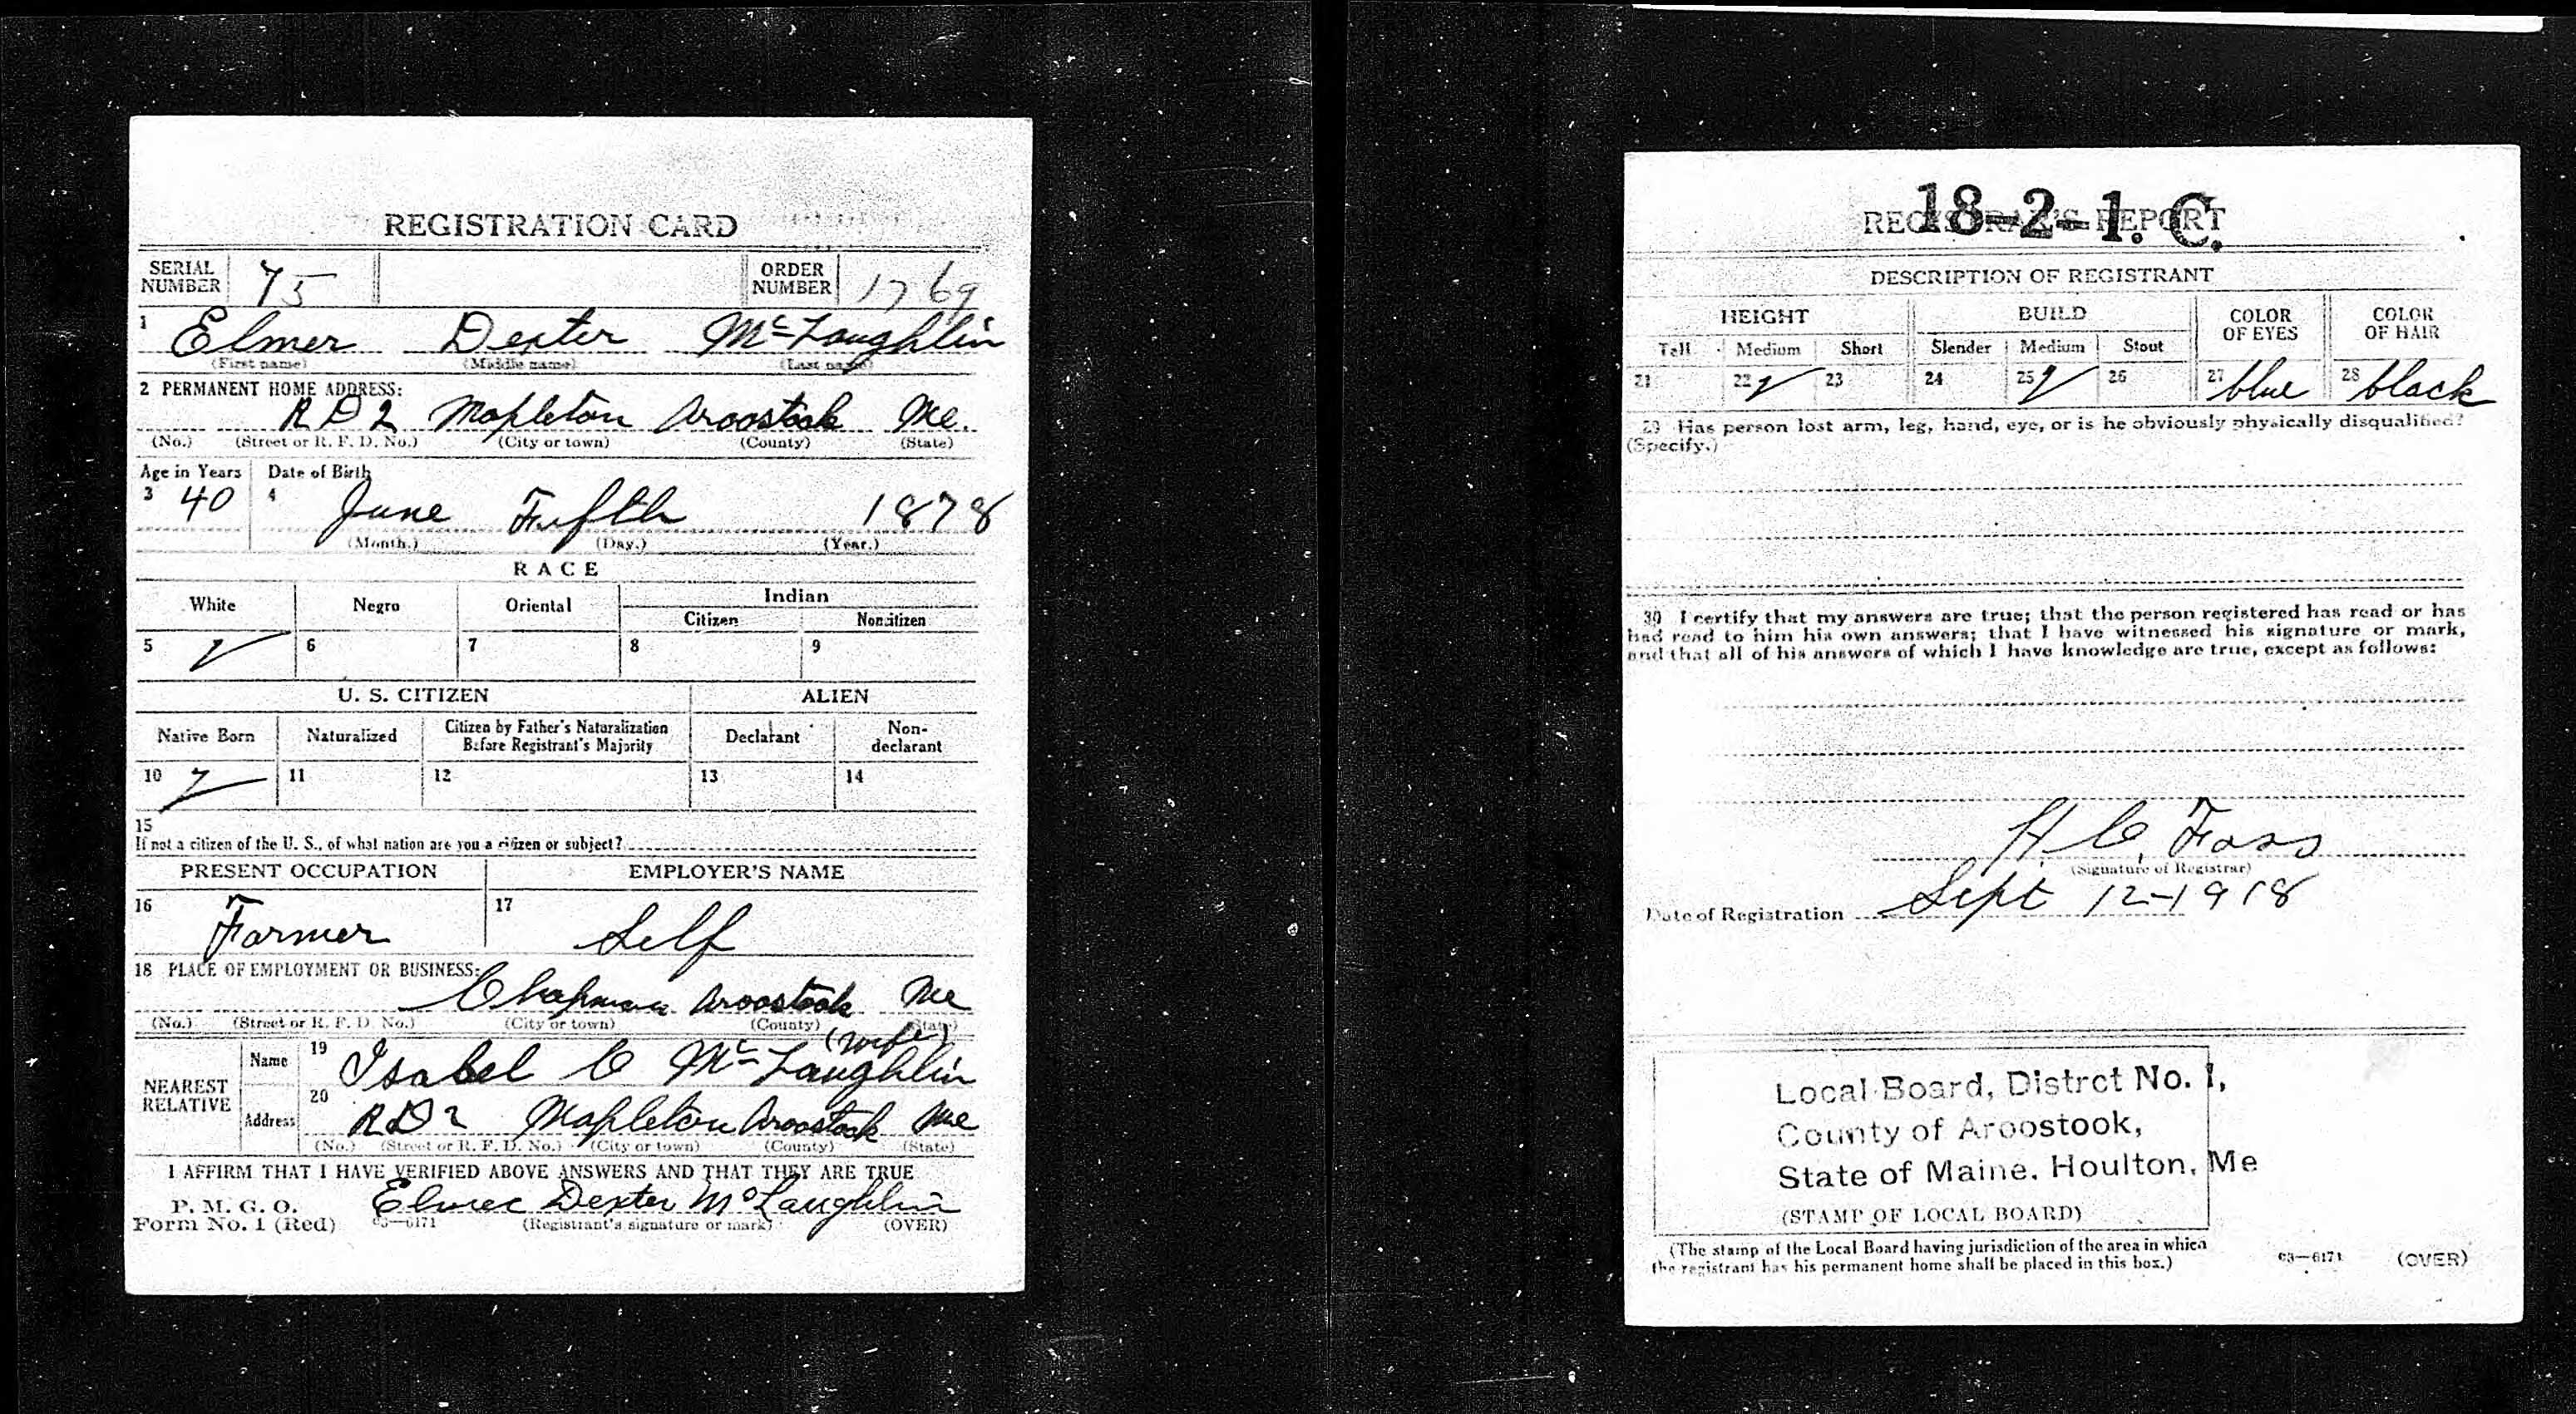 REGISTRATION CARD
SERIAL NUMBER 75 ORDER NUMBER 1769
1 Elmer Dexter McLaughlin
(First name) (Middle name) (Last name)
2 PERMANENT HOME ADDRESS:
R D 2 Mapleton Aroostook Me.
(No.) (Street or R. F. D. No.) (City or town) (County) (State)
Age in Years Date of Birth
3 40 4 June Fifth 1878
(Month.) (Day.) (Year.)
RACE
White Negro Oriental Indian
Citizen Noncitizen
5 ✓ 6 7 8 9
U. S. CITIZEN ALIEN
Native Born Naturalized Citizen by Father's Naturalization Before Registrant's Majority Declarant Non-declarant
10 ✓ 11 12 13 14
15
If not a citizen of the U. S., of what nation are you a citizen or subject?
PRESENT OCCUPATION EMPLOYER'S NAME
16 Farmer 17 Self
18 PLACE OF EMPLOYMENT OR BUSINESS:
Chapman Aroostook Me
(No.) (Street or R. F. D. No.) (City or town) (County) (State)
(wife)
NEAREST RELATIVE Name 19 Isabel C McLaughlin
Address 20 R D 2 Mapleton Aroostook Me
(No.) (Street or R. F. D. No.) (City or town) (County) (State)
I AFFIRM THAT I HAVE VERIFIED ABOVE ANSWERS AND THAT THEY ARE TRUE
P. M. G. O. Elmer Dexter McLaughlin
Form No. 1 (Red) 03—6171 (Registrant's signature or mark) (OVER)
18-2-1. C.
REGISTRAR'S REPORT
DESCRIPTION OF REGISTRANT
HEIGHT BUILD COLOR OF EYES COLOR OF HAIR
Tall Medium Short Slender Medium Stout
21 22 ✓ 23 24 25 ✓ 26 27 blue 28 black
29 Has person lost arm, leg, hand, eye, or is he obviously physically disqualified?
(Specify.)
30 I certify that my answers are true; that the person registered has read or has
had read to him his own answers; that I have witnessed his signature or mark,
and that all of his answers of which I have knowledge are true, except as follows:
H. C. Foss
(Signature of Registrar)
Date of Registration Sept 12-1918
Local Board, Distrct No. 1,
County of Aroostook,
State of Maine. Houlton, Me
(STAMP OF LOCAL BOARD)
(The stamp of the Local Board having jurisdiction of the area in which
the registrant has his permanent home shall be placed in this box.)
03—6171 (OVER)